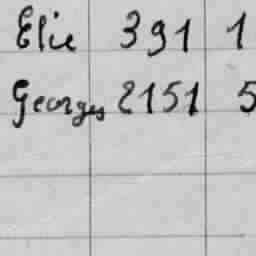 Elie 391 1
Georges 2151 5